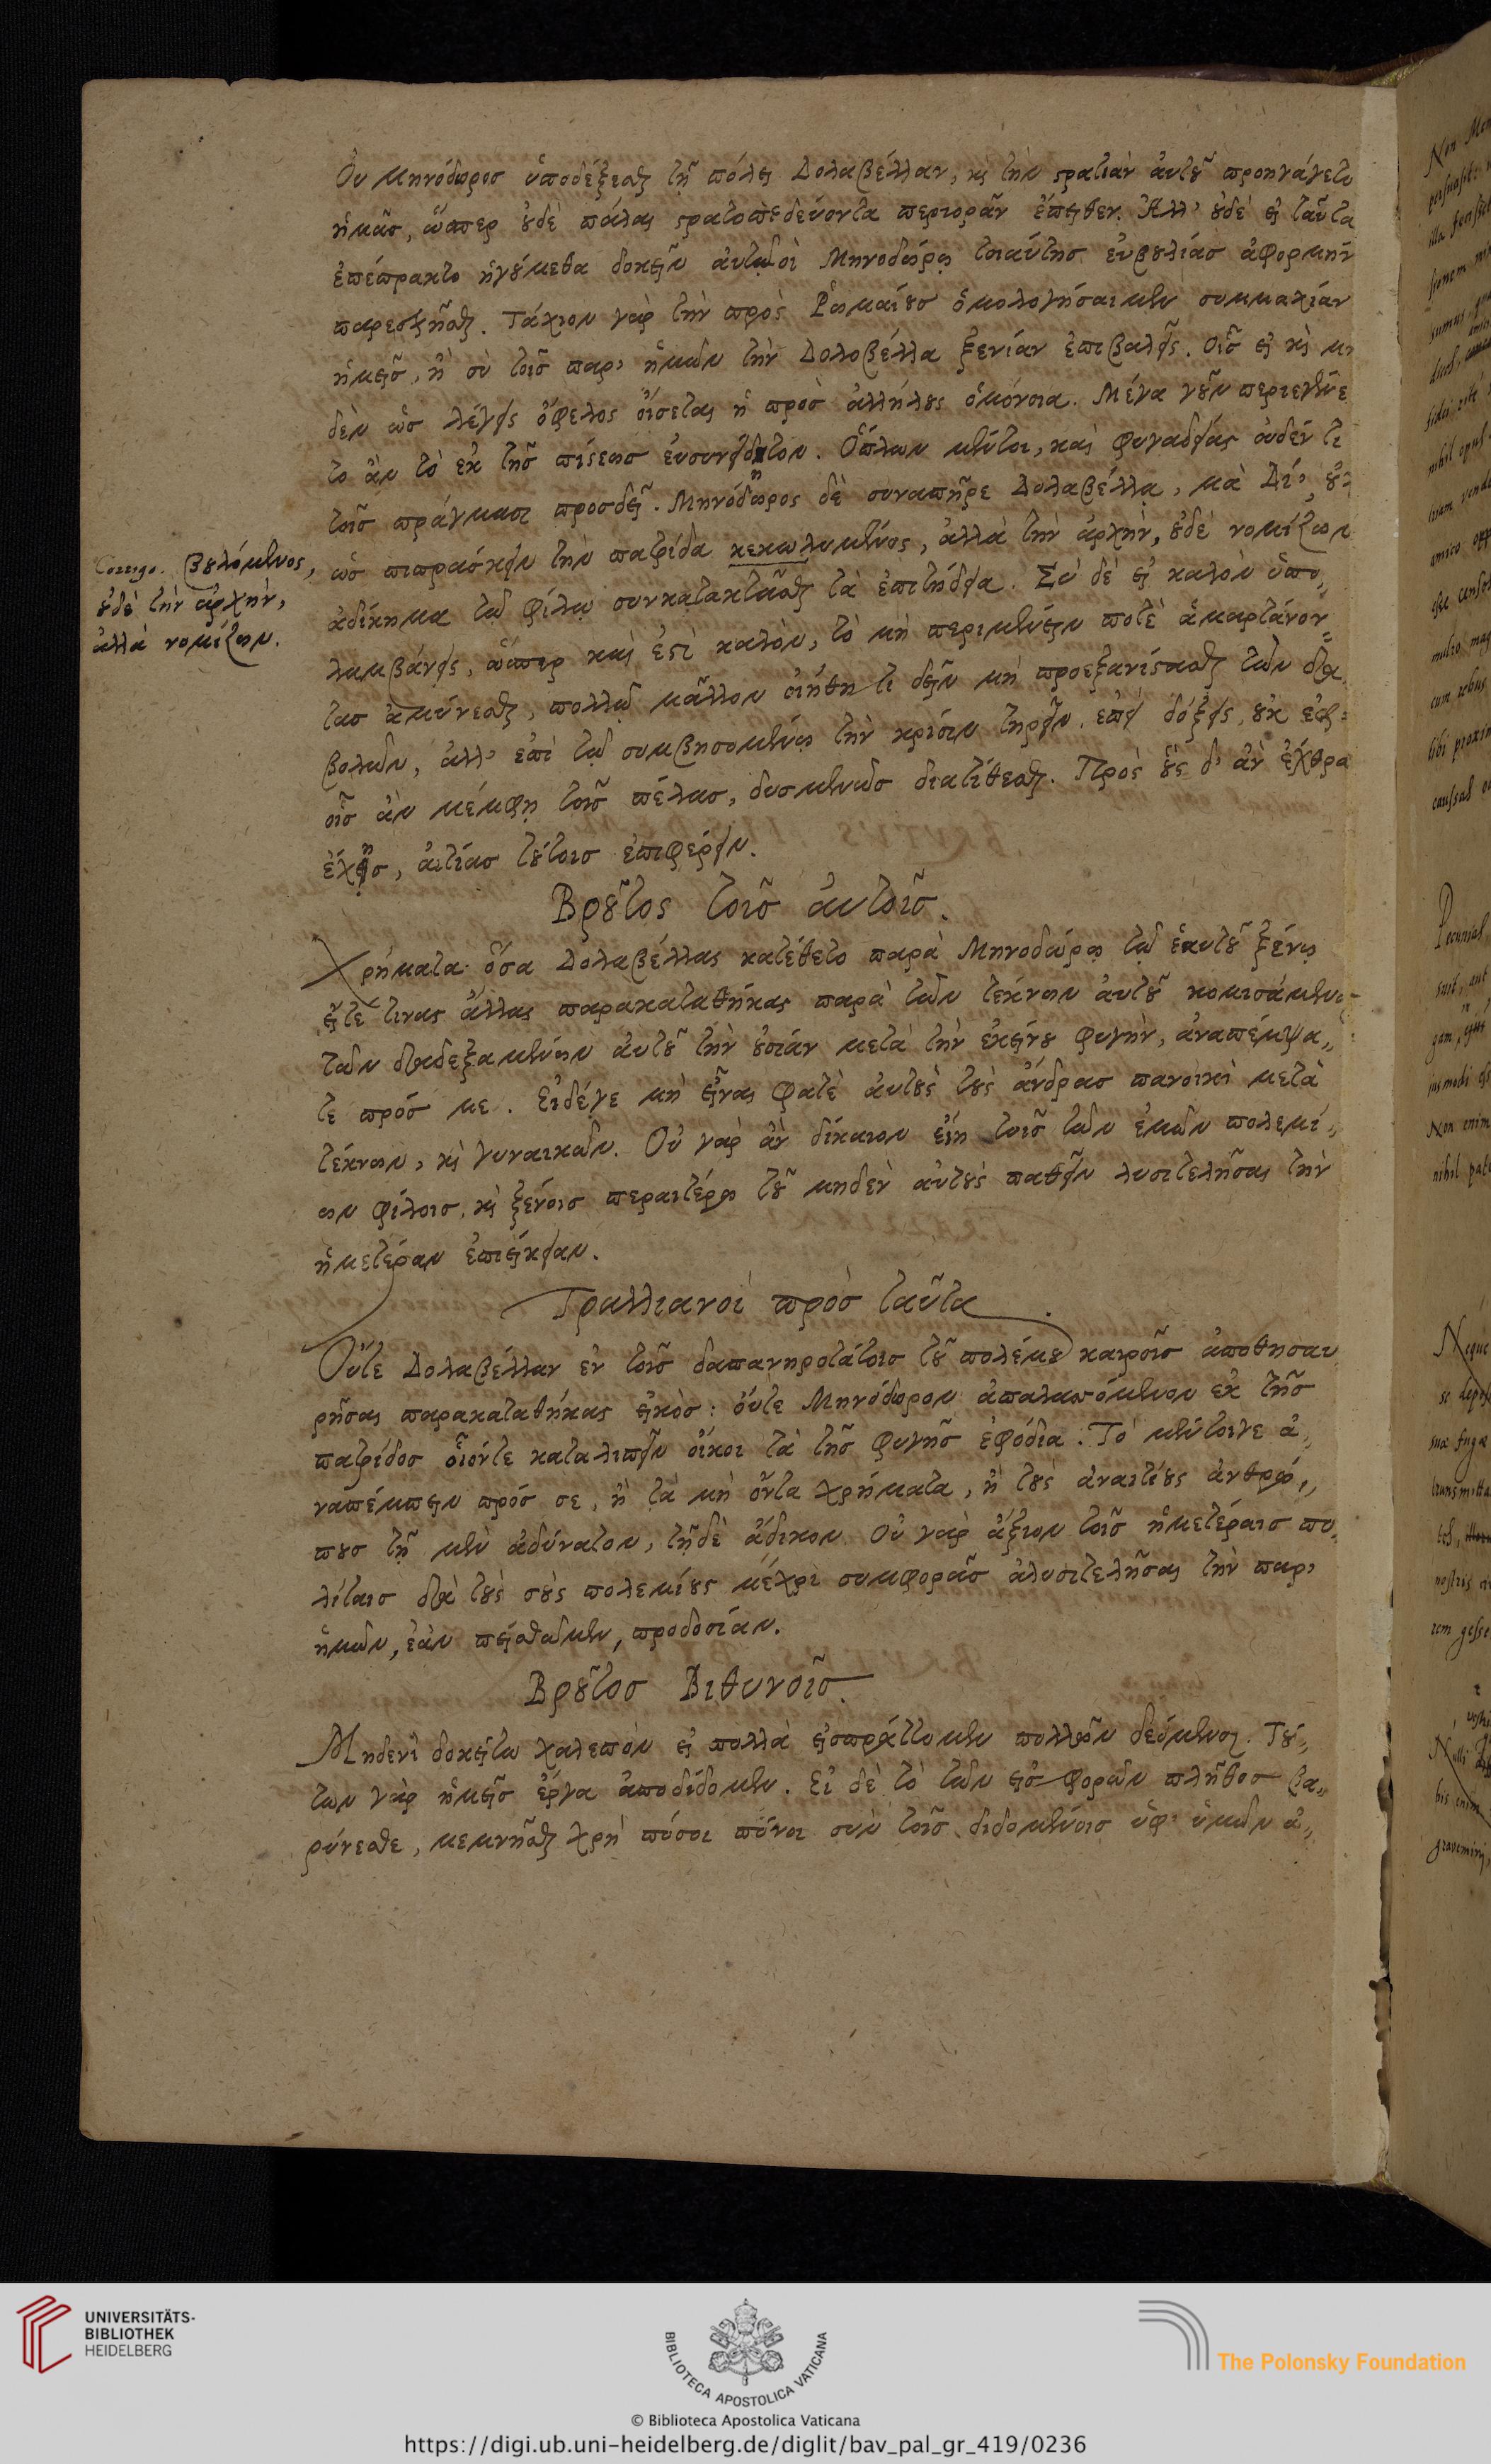 Οὐ Μηνόδωρος ὑποδέξεσθαι τῇ πόλει Δολαβέλλαν, καὶ τὴν στρατιὰν αὐτοῦ προηγάγετο
ἡμᾶς, ὥσπερ οὐδὲ πάλαι στρατοπεδεύοντα περιορᾶν ἔπειθεν. Ἀλλ' οὐδὲ εἰ ταῦτα
ἐπέπρακτο ἡγούμεθα δοκεῖν αὐτῷ οἱ Μηνοδώρῳ τοιαύτης εὐβουλίας ἀφορμὴν
παρεσχῆσθαι. Τάχιον γὰρ τὴν πρὸς Ῥωμαίους ὁμολογήσαιμεν συμμαχίαν
ἡμεῖς, ἢ σὺ τοῖς παρ' ἡμῶν τὴν Δολοβέλλα ξενίαν ἐπιβαλεῖς. Οἷς εἰ καὶ μη
δὲν ὡς λέγεις ὄφελος οἴσεται ἡ πρὸς ἀλλήλους ὁμόνοια. Μέγα γοῦν περιεγένε
το ἂν τὸ ἐκ τῆς πίστεως εὐσυνείδητον. Ὅπλων μέντοι, καὶ φυγαδείας οὐδέν τι
τοῖς πράγμασι προσδεῖ. Μηνόδωρος δὲ συναπῆρε Δολαβέλλα, μὰ Δί' οὐχ
ὡς πιπράσκειν τὴν πατρίδα κεκωλυμένος, ἀλλὰ τὴν ἀρχὴν, οὐδὲ νομίζων
Corrigo. βουλόμενος,
οὐδὲ τὴν ἀρχὴν,
ἀλλὰ νομίζων.
ἀδίκημα τῷ φίλῳ συγκατακτᾶσθαι τὰ ἐπιτήδεια. Σὺ δὲ εἰ καλὸν ὑπο„
λαμβάνεις, ὥσπερ καὶ ἐστὶ καλὸν, τὸ μὴ περιμένειν ποτὲ ἁμαρτάνον„
τας ἀμύνεσθαι, πολλῷ μᾶλλον οἰήθητι δεῖν μὴ προεξανίστασθαι τῶν δια
βολῶν, ἀλλ' ἐπὶ τῷ συμβησομένῳ τὴν κρίσιν τηρεῖν. ἐπεὶ δόξεις, οὐκ ἐφ=
οἷς ἂν μέμφῃ τοῖς πέλας, δυσμενῶς διατίθεσθαι. Πρὸς οὓς δ' ἂν ἐχθρα
ἔχῃς, αἰτίας τούτοις ἐπιφέρειν.
Βροῦτος τοῖς αὐτοῖς.
Χρήματα ὅσα Δολαβέλλας κατέθετο παρὰ Μηνοδώρῳ τῷ ἑαυτοῦ ξένῳ
εἴτε τινας ἄλλας παρακαταθήκας παρὰ τῶν τέκνων αὐτοῦ κομισάμενοι
τῶν διαδεξαμένων αὐτοῦ τὴν οὐσίαν μετὰ τὴν ἐκείνου φυγὴν, ἀναπέμψα„
τε πρός με. Εἰδέγε μὴ εἶναι φατὲ αὐτοὺς τοὺς ἄνδρας πανοικὶ μετὰ
τέκνων, καὶ γυναικῶν. Οὐ γὰρ ἂν δίκαιον εἴη τοῖς τῶν ἐμῶν πολεμί„
ων φίλοις, καὶ ξένοις περαιτέρω τοῦ μηδὲν αὐτοὺς παθεῖν λυσιτελῆσαι τὴν
ἡμετέραν ἐπιείκειαν.
Τραλλιανοὶ πρὸς ταῦτα.
Οὔτε Δολαβέλλαν ἐν τοῖς δαπανηροτάτοις τοῦ πολέμου καιροῖς ἀποθησαυ
ρῆσαι παρακαταθήκας εἰκὸς: οὔτε Μηνόδωρον ἀπαλαπόμενον ἐκ τῆς
πατρίδος οἷόντε καταλιπεῖν οἴκοι τὰ τῆς φυγῆς ἐφόδια. Τὸ μέντοιγε ἀ„
ναπέμπειν πρός σε, ἢ τὰ μὴ ὄντα χρήματα, ἢ τοὺς ἀναιτίους ἀνθρώ„
πους τῇ μὲν ἀδύνατον, τῇδὲ ἄδικον. Οὐ γὰρ ἄξιον τοῖς ἡμετέραις πο„
λίταις διὰ τοὺς σοὺς πολεμίους μέχρι συμφορᾶς ἀλυσιτελῆσαι τὴν παρ'
ἡμῶν, ἐὰν πεισθῶμεν, προδοσίαν.
Βροῦτος Βιθυνοῖς.
Μηδενὶ δοκείτω χαλεπὸν εἰ πολλὰ εἰσπράττομεν πολλῶν δεόμενοι. Τού„
των γὰρ ἡμεῖς ἔργα ἀποδίδομεν. Εἰ δὲ τὸ τῶν εἰσφορῶν πλῆθος βα„
ρύνεσθε, μεμνῆσθαι χρὴ πόσοι πόνοι σὺν τοῖς διδομένοις ὑφ' ὑμῶν ἀ„
UNIVERSITÄTS-
BIBLIOTHEK
HEIDELBERG
BIBLIOTECA APOSTOLICA VATICANA
The Polonsky Foundation
© Biblioteca Apostolica Vaticana
https://digi.ub.uni-heidelberg.de/diglit/bav_pal_gr_419/0236